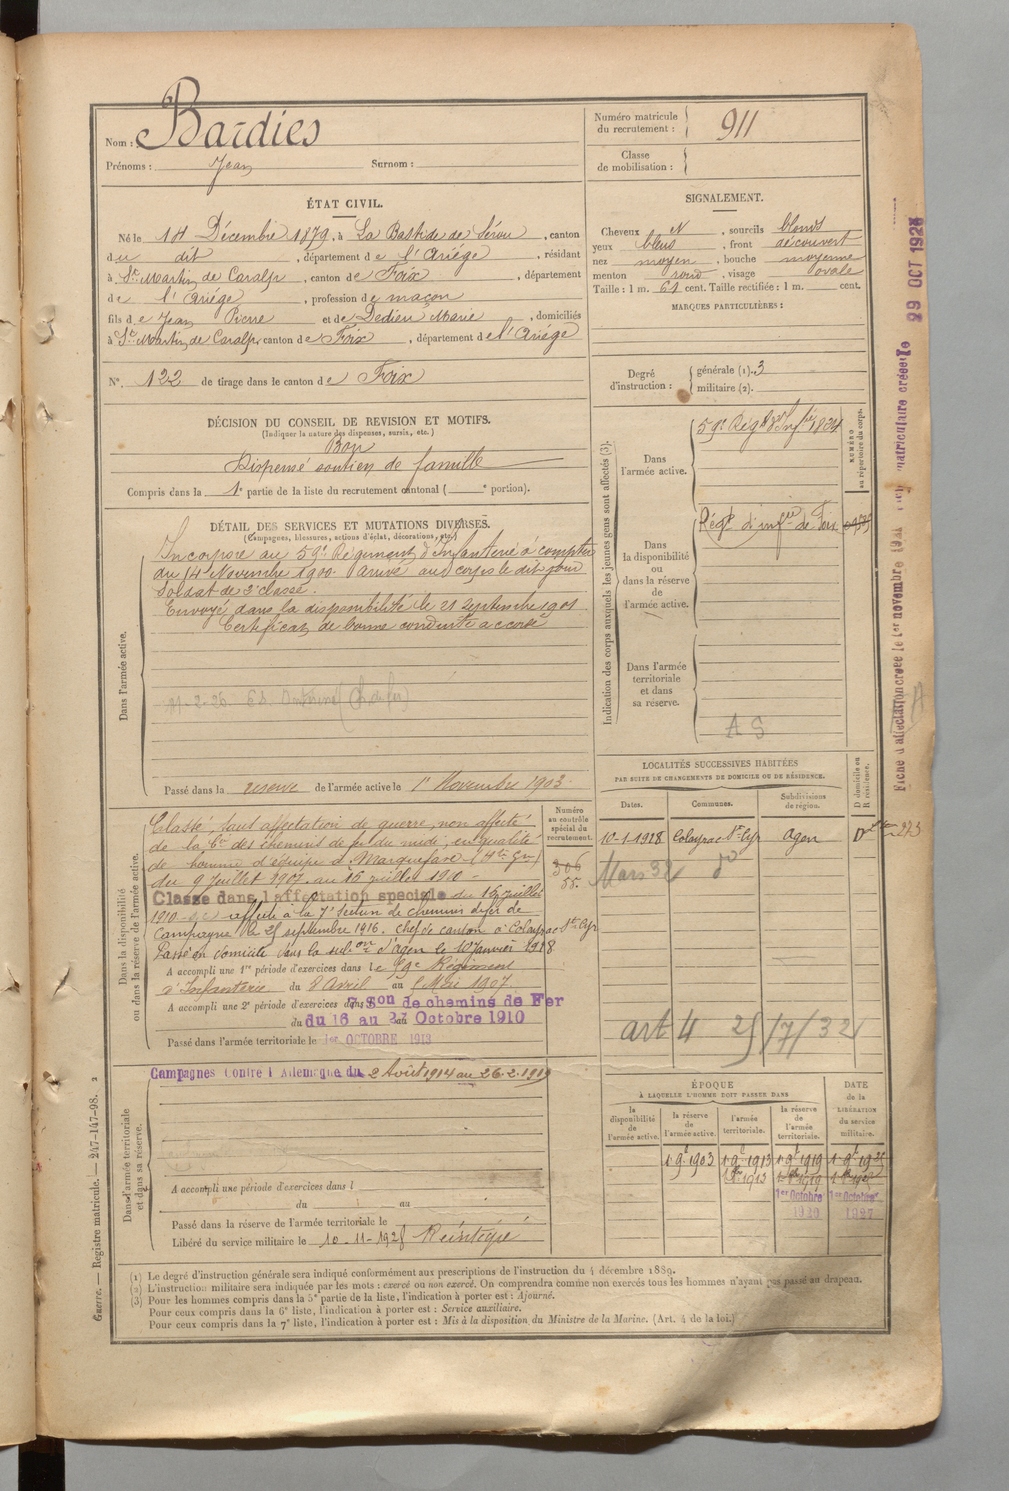 Nom : Bardies
Prénoms : Jean Surnom :
Numéro matricule du recrutement : 911
Classe de mobilisation :
ÉTAT CIVIL.
Né le 18 Décembre 1879, à La Bastide de Sérou, canton
du dit, département de l'Ariége, résidant
à St Martin de Caralp, canton de Foix, département
de l'Ariége, profession de maçon
fils de Jean Pierre et de Dedieu Marie, domiciliés
à St Martin de Caralp, canton de Foix, département de l'Ariége
N° 122 de tirage dans le canton de Foix
SIGNALEMENT.
Cheveux N, sourcils blonds
yeux bleus, front découvert
nez moyen, bouche moyenne
menton rond, visage ovale
Taille : 1 m. 61 cent. Taille rectifiée : 1 m. cent.
MARQUES PARTICULIÈRES :
Degré d'instruction : générale (1). 3
militaire (2).
DÉCISION DU CONSEIL DE REVISION ET MOTIFS.
(Indiquer la nature des dispenses, sursis, etc.)
Bon
Dispensé soutien de famille
Compris dans la 1e partie de la liste du recrutement cantonal ( e portion).
DÉTAIL DES SERVICES ET MUTATIONS DIVERSES.
(Campagnes, blessures, actions d'éclat, décorations, etc.)
Dans l'armée active.
Incorporé au 59e Régiment d'Infanterie à compter
du 14 Novembre 1900. Arrivé au corps le dit jour
Soldat de 2e classe.
Envoyé dans la disponibilité le 21 Septembre 1901
Certificat de bonne conduite accordé
11-2-26
Passé dans la réserve de l'armée active le 1r Novembre 1903.
Indication des corps auxquels les jeunes gens sont affectés (3).
NUMÉRO au répertoire du corps.
Dans l'armée active.
59e Régt d'Infie
Dans la disponibilité ou dans la réserve de l'armée active.
Régt d'infie de Foix
Dans l'armée territoriale et dans sa réserve.
A S
LOCALITÉS SUCCESSIVES HABITÉES
PAR SUITE DE CHANGEMENTS DE DOMICILE OU DE RÉSIDENCE.
Dates. Communes. Subdivisions de région. D domicile ou R résidence.
10-1-1928 Colayrac St Cyr Agen D
Mars 32 do
art 4 25/7/32
Dans la disponibilité ou dans la réserve de l'armée active.
Numéro au contrôle spécial du recrutement.
306
55.
Classé, sauf affectation de guerre, non affecté
de la Cie des chemins de fer du midi, en qualité
de homme d'équipe à Marquefave (Hte Gne)
du 9 Juillet 1907 au 15 juillet 1910 -
Classé dans l'affectation spéciale du 16 juillet
1910 affecté à la 7e Section de chemins de fer de
Campagne le 25 septembre 1916. Chef de canton à Colayrac St Cyr
Passé en domicile dans la subon d'Agen le 10 janvier 1928
A accompli une 1re période d'exercices dans le 59e Régiment
d'Infanterie du 8 Avril au Mai 1907.
A accompli une 2e période d'exercices dans 7e Son de chemins de Fer
du du 16 au 27 Octobre 1910
Passé dans l'armée territoriale le 1er OCTOBRE 1913
Dans l'armée territoriale et dans sa réserve.
Campagnes Contre l'Allemagne du 2 Août 1914 au 26.2.1919
A accompli une période d'exercices dans l
du au
Passé dans la réserve de l'armée territoriale le
Libéré du service militaire le 10-11-1928 Réintégré
ÉPOQUE
À LAQUELLE L'HOMME DOIT PASSER DANS
DATE de la LIBÉRATION du service militaire.
la disponibilité de l'armée active. la réserve de l'armée active. l'armée territoriale. la réserve de l'armée territoriale.
1 9e 1903 1 9e 1913 1 9e 1919
1er Octobre 1er Octobre
1927
(1) Le degré d'instruction générale sera indiqué conformément aux prescriptions de l'instruction du 4 décembre 1889.
(2) L'instruction militaire sera indiquée par les mots : exercé ou non exercé. On comprendra comme non exercés tous les hommes n'ayant pas passé au drapeau.
(3) Pour les hommes compris dans la 5e partie de la liste, l'indication à porter est : Ajourné.
Pour ceux compris dans la 6e liste, l'indication à porter est : Service auxiliaire.
Pour ceux compris dans la 7e liste, l'indication à porter est : Mis à la disposition du Ministre de la Marine. (Art. 4 de la loi.)
Guerre. — Registre matricule. — 247-147-98. 2
29 OCT 1928